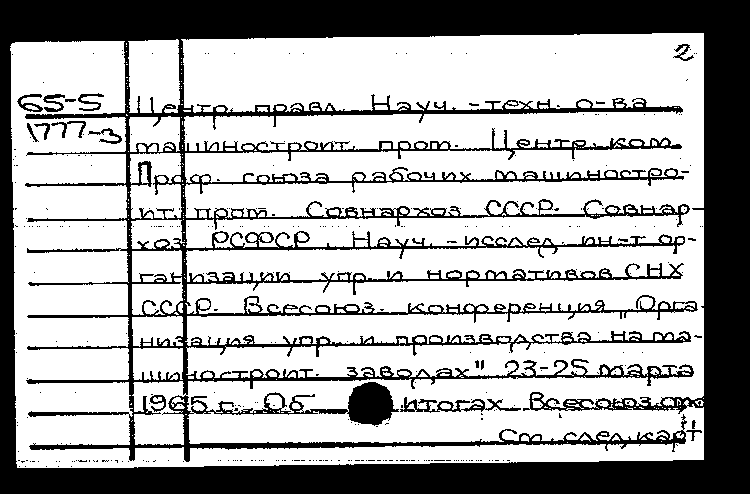 2
65-5 Центр. правл. Науч.-техн. о-ва
1777-3 машиностроит. пром. Центр. ком.
Проф. союза рабочих машиностро-
ит. пром. Совнархоз СССР. Совнар-
хоз РСФСР. Науч.-исслед. ин-т ор-
ганизации упр. и нормативов СНХ
СССР. Всесоюз. конференция „Орга-
низация упр. и производства на ма-
шиностроит. заводах" 23-25 марта
1965 г. Об итогах Всесоюз.
См. след. карт